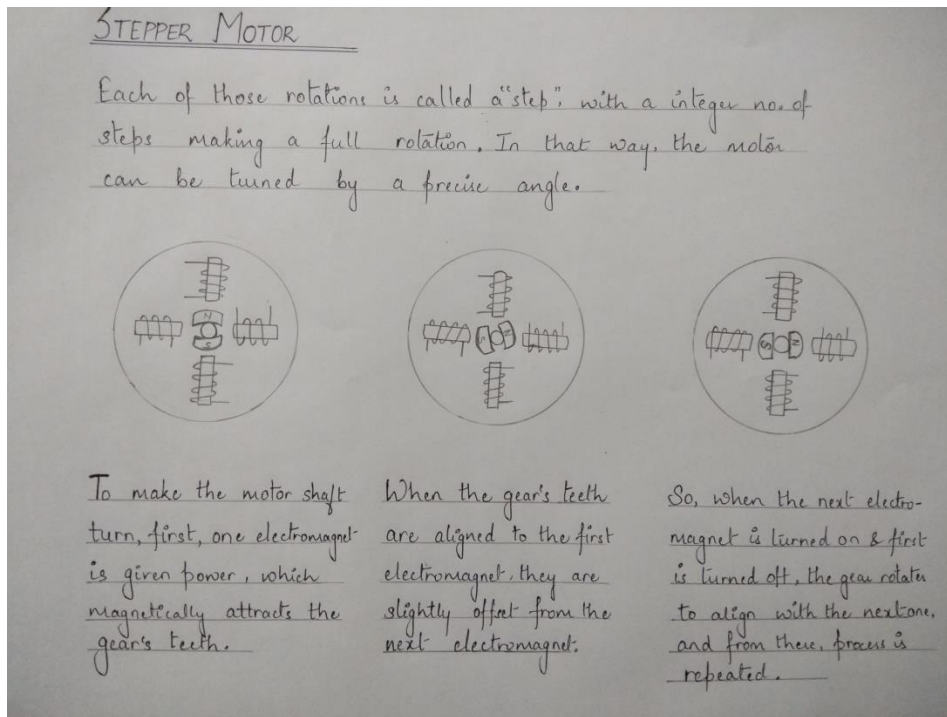 STEPPER MOTOR
Each of those rotations is called a "step", with a integer no. of
steps making a full rotation. In that way, the motor
can be tuned by a precise angle.
N
S
S
N
S
N
To make the motor shaft
turn, first, one electromagnet
is given power, which
magnetically attracts the
gear's teeth.
When the gear's teeth
are aligned to the first
electromagnet, they are
slightly offset from the
next electromagnet.
So, when the next electro-
magnet is turned on & first
is turned off, the gear rotates
to align with the next one,
and from there, process is
repeated.